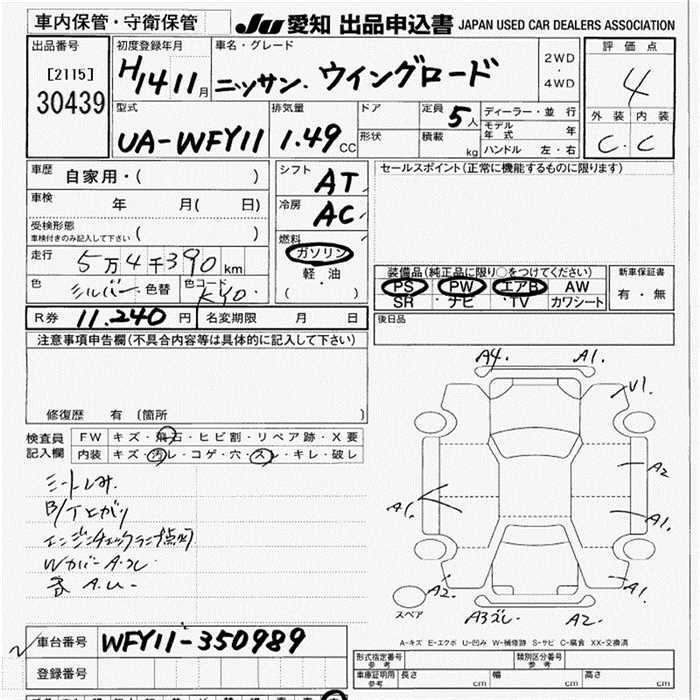 車内保管・守衛保管
JU 愛知 出品申込書 JAPAN USED CAR DEALERS ASSOCIATION
出品番号
[2115]
30439
初度登録年月
H14 11月
車名・グレード
ニッサン. ウイングロード
2WD
・
4WD
評価点
4
外装 内装
C. C
型式
UA-WFY11
排気量
1.49 CC
ドア
形状
定員 5人
積載 kg
ディーラー・並行
モデル年式 年
ハンドル 左・右
車歴
自家用・( )
車検
年 月( 日)
受検形態
車検付きのみ記入して下さい ( )
走行
5万4千390km
色
シルバー 色替
色コード
KY0
シフト
AT
冷房
AC
燃料
ガソリン
軽・油
( )
セールスポイント(正常に機能するものに限ります)
装備品(純正品に限り〇をつけてください)
PS PW エアB AW
SR ナビ ・TV カワシート
新車保証書
有・無
R券 11.240 円 名変期限 月 日
後日品
注意事項申告欄(不具合内容等は具体的に記入して下さい)
修復歴 有 (箇所 )
検査員
記入欄
FW キズ・飛石・ヒビ割・リペア跡・X要
内装 キズ・汚レ・コゲ・穴・スレ・キレ・破レ
エンジンチェックランプ点灯
WカバーA.スレ
A4. A1.
V1.
A2
A1.
A1.
A2. A1.
スペア
A3ズレ. A2.
A-キズ E-エクボ U-凹み W-補修跡 S-サビ C-腐食 XX-交換済
車台番号 WFY11-350989
登録番号
形式指定番号
参考
類別区分番号
参考
車庫証明用
参考
長さ cm 幅 cm 高さ cm